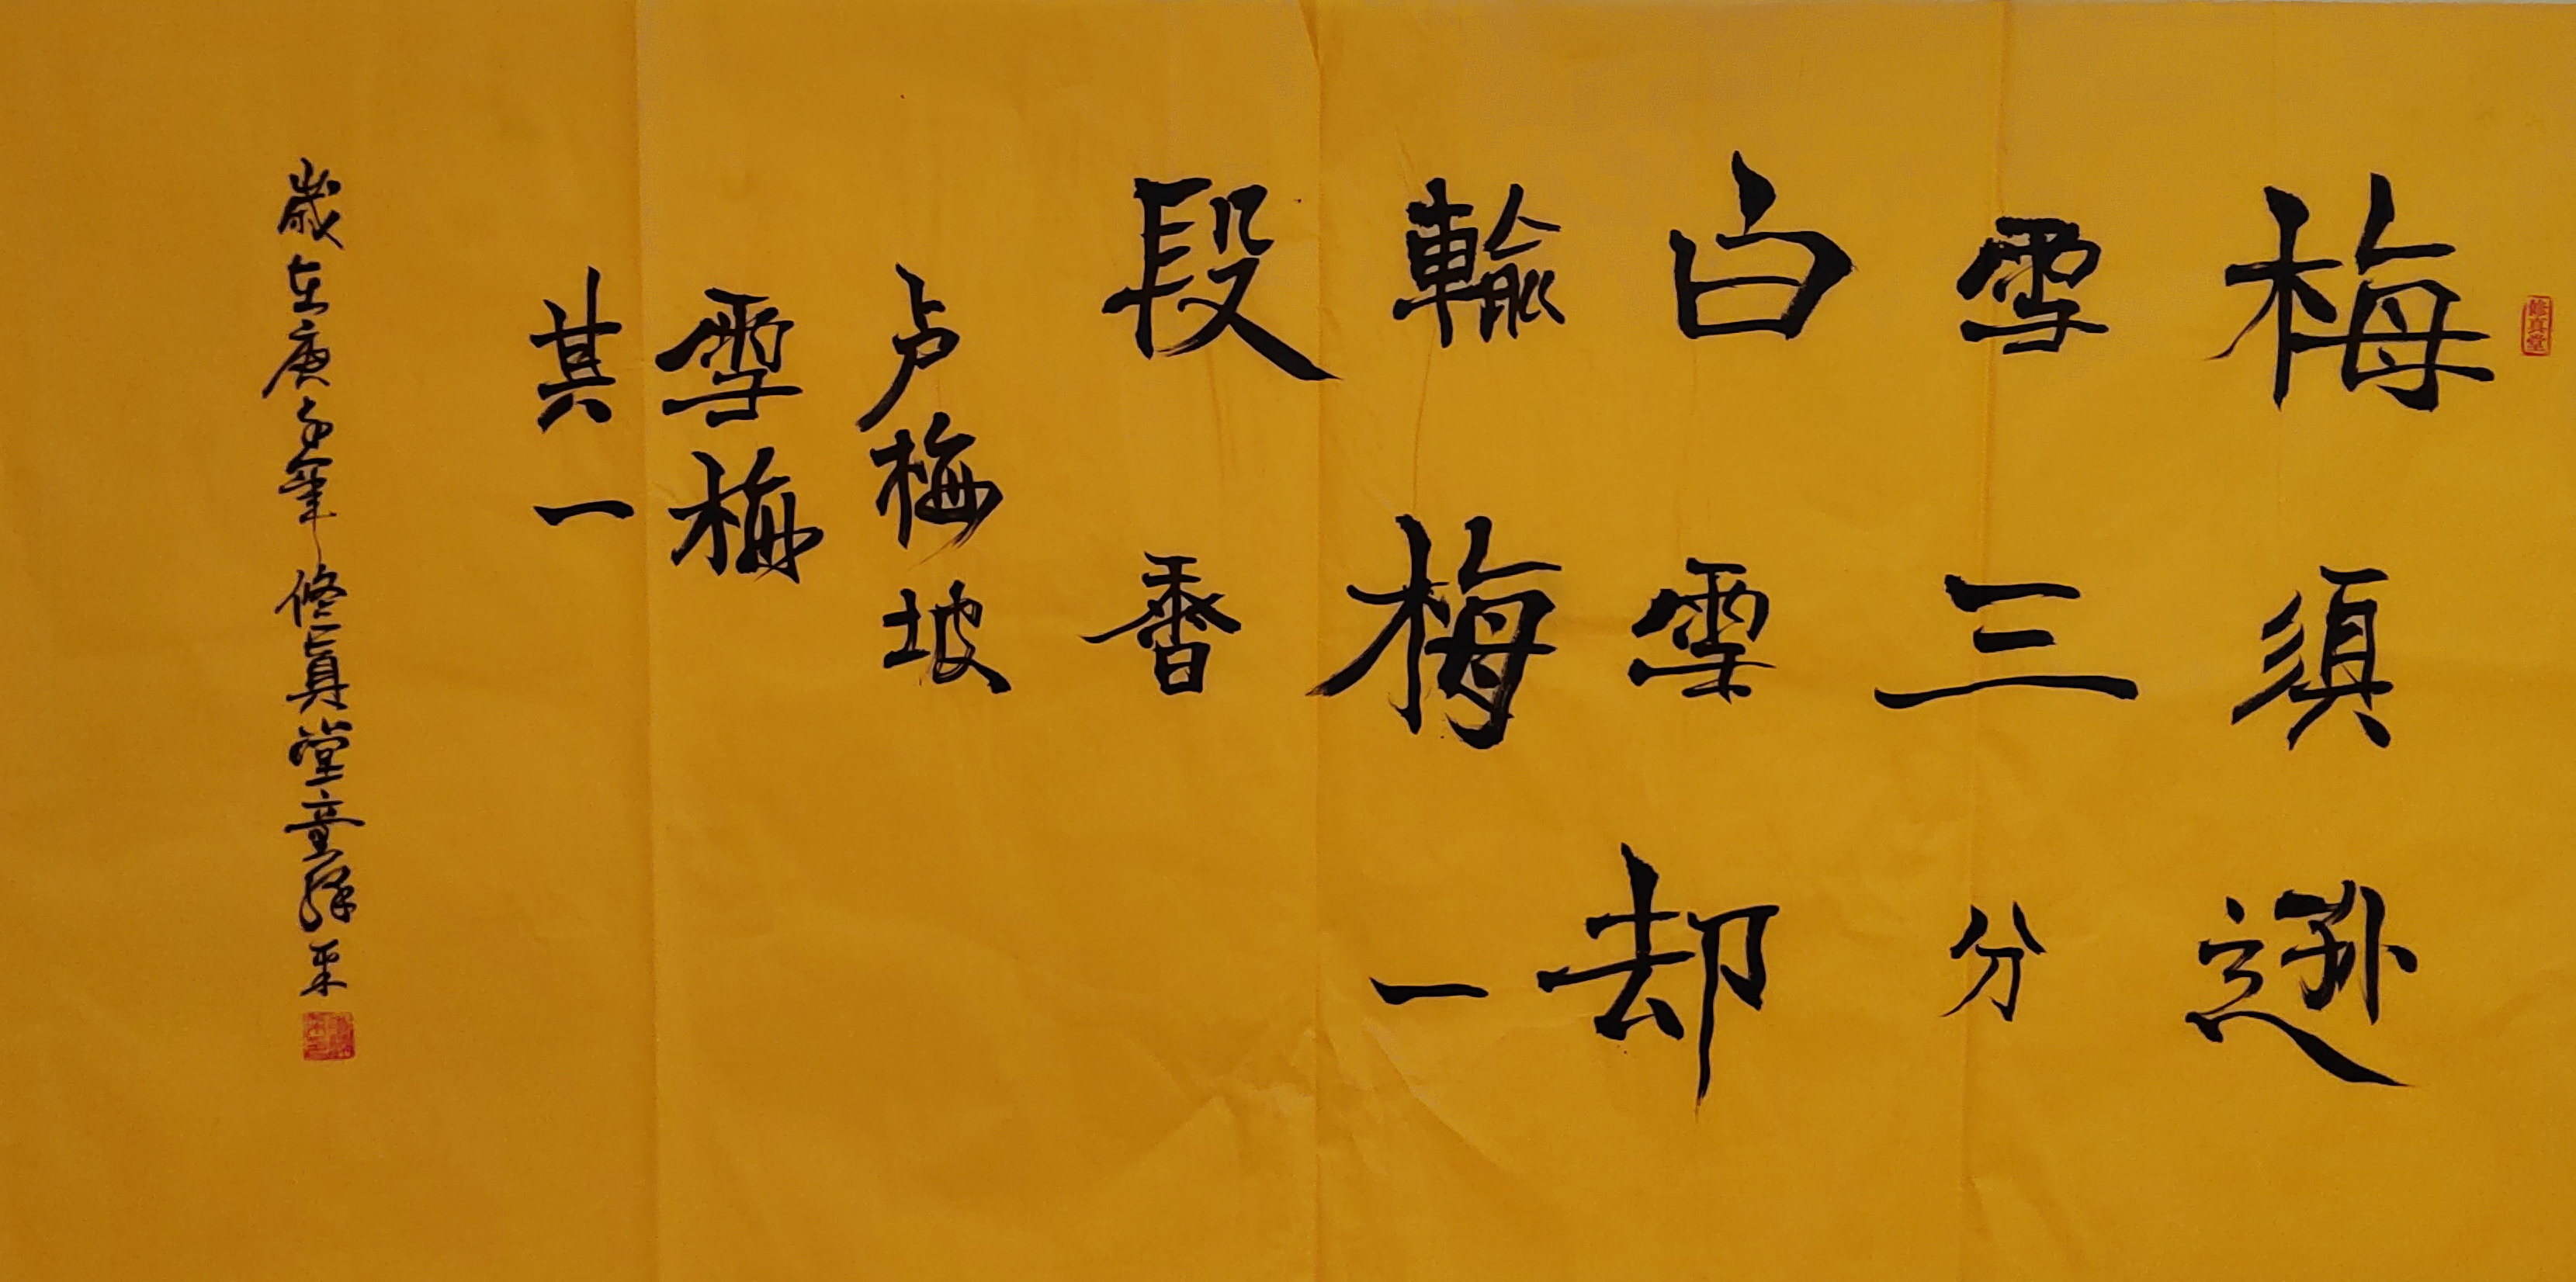 修真堂
梅須遜
雪三分
白雪却
輸梅一
段香
卢梅坡
雪梅
其一
歲在庚子 修真堂童